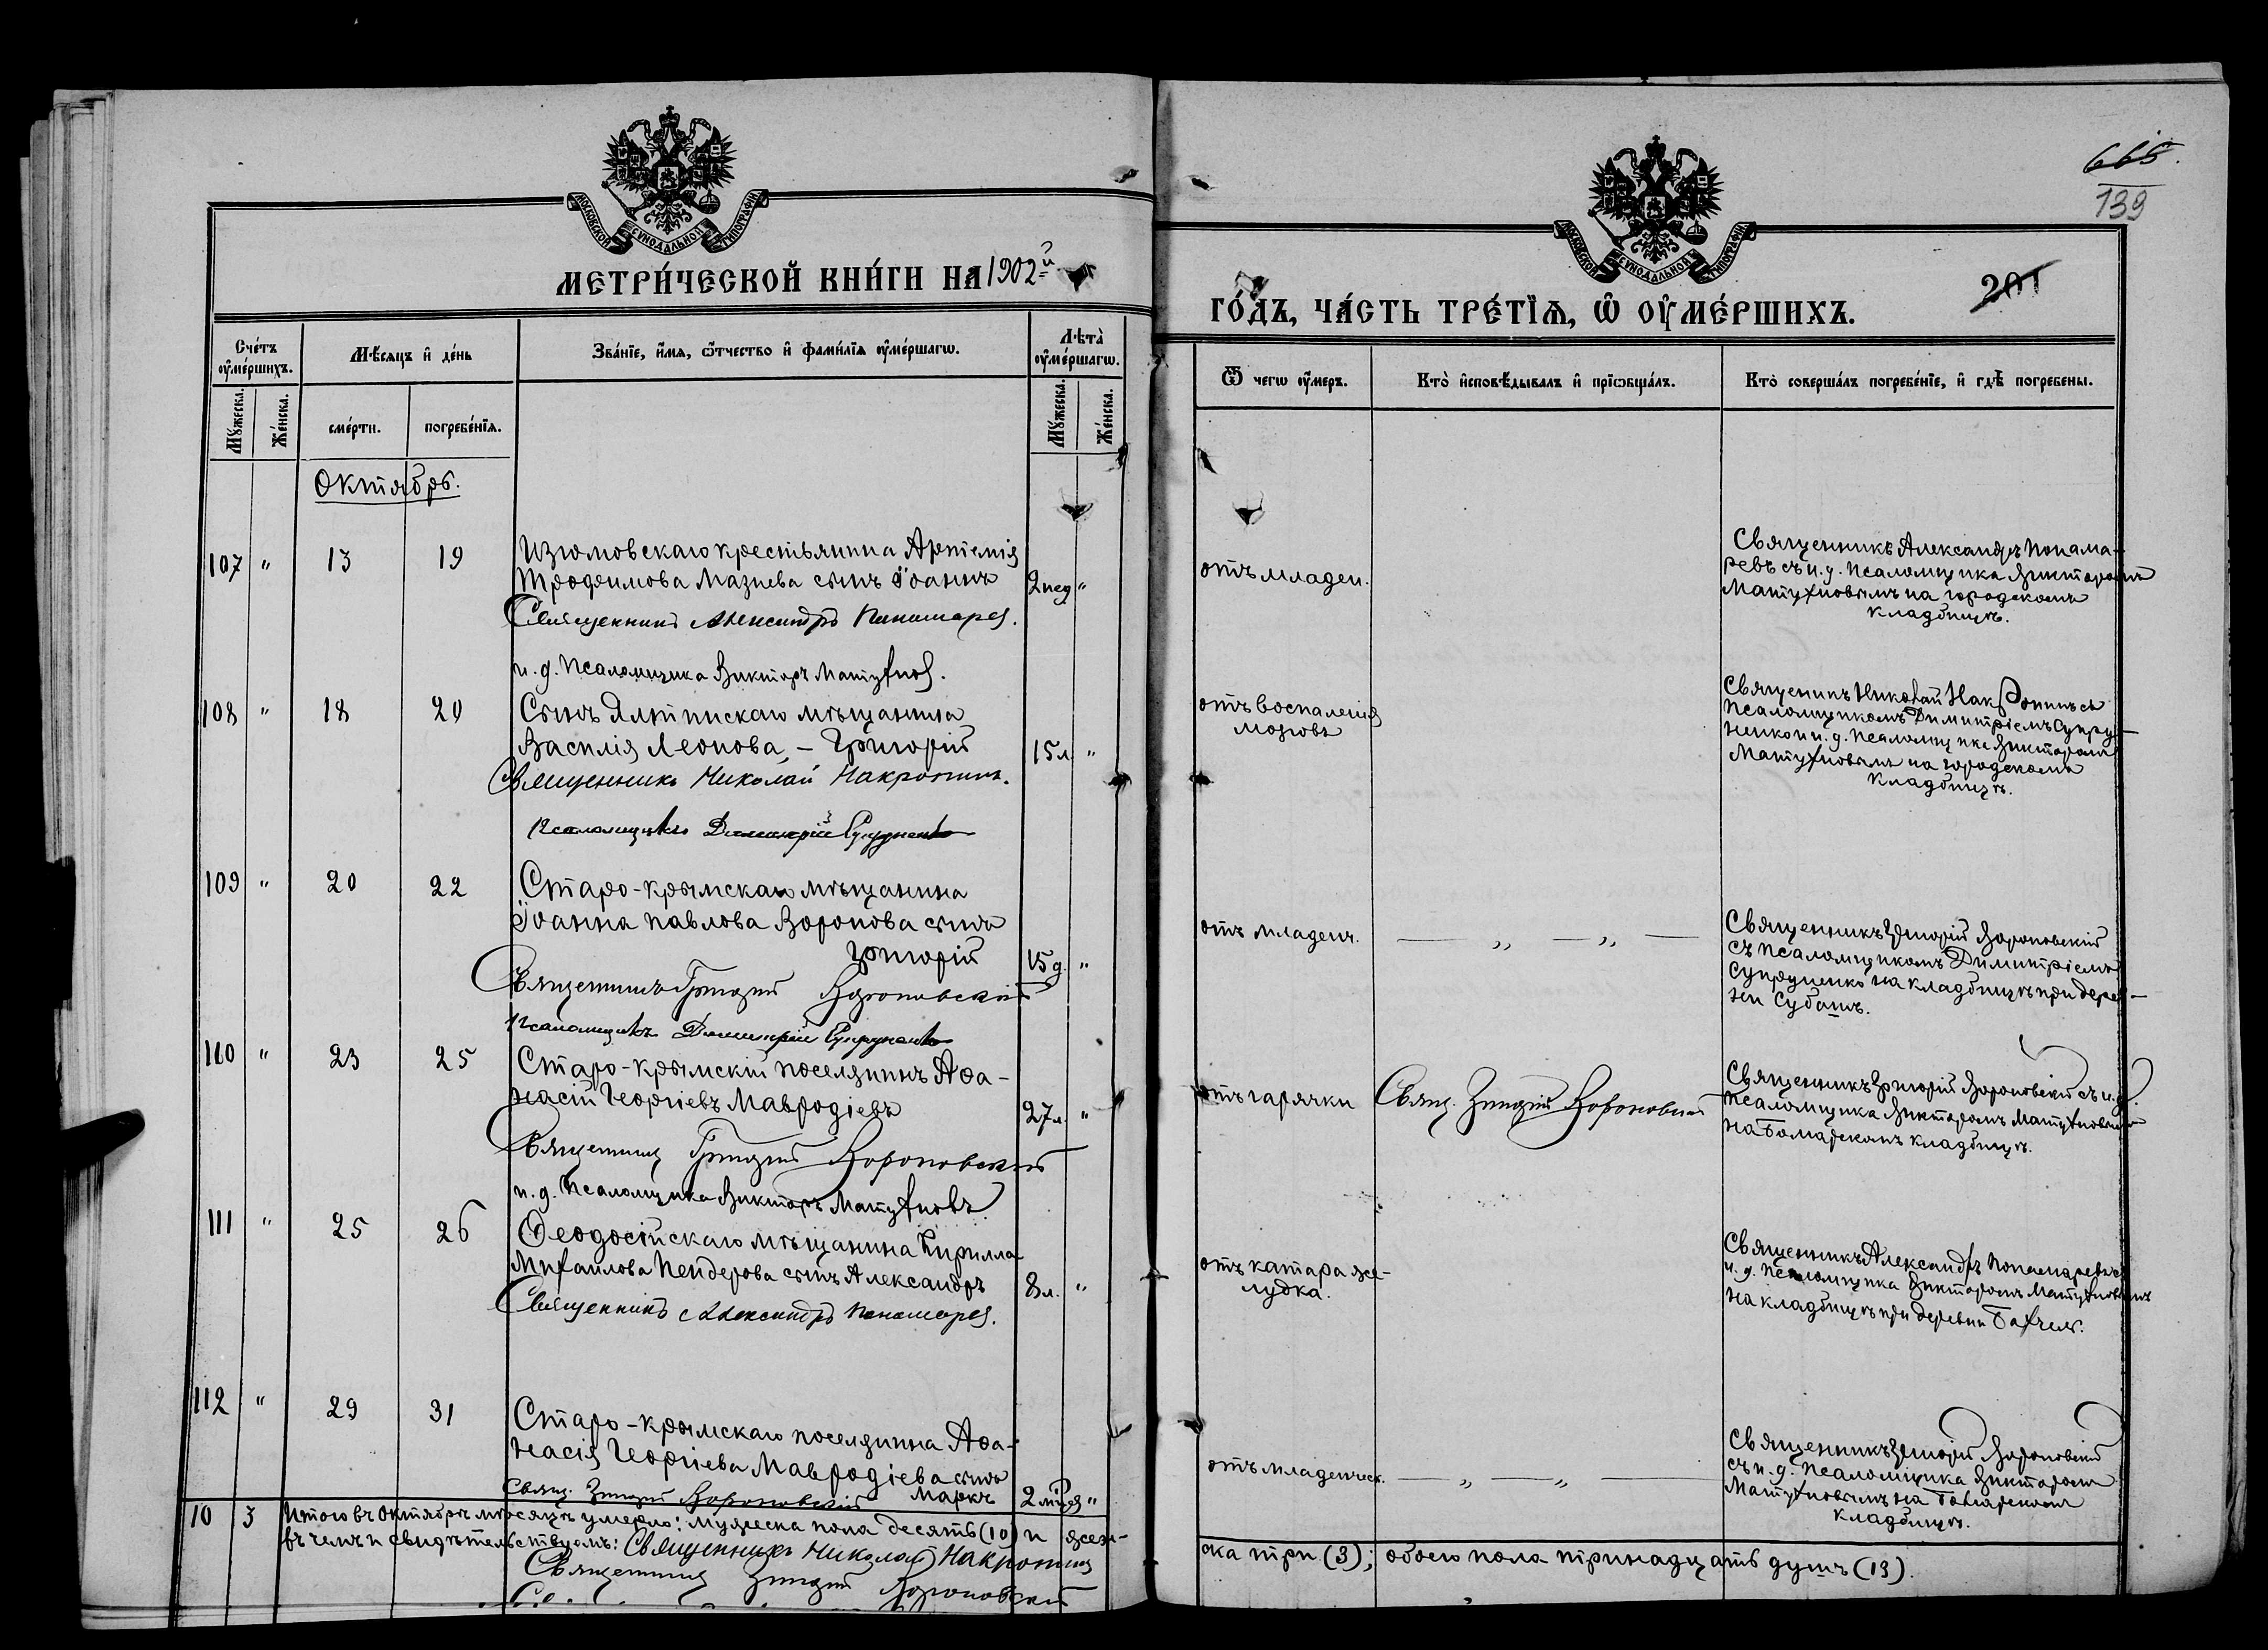 МОСКОВСКОЙ СѴНОДАЛЬНОЙ ТИПОГРАФІИ
МЕТРИ́ЧЕСКОЙ КНИ́ГИ НА 1902й
Сче́тъ ᲂумершихъ.
Мѣ́сяцъ и де́нь
Зва́нїе, и́мя, ѻ҆́тчество и фами́лїя ᲂуме́ршагѡ.
Лѣта̀ ᲂуме́ршагѡ.
Му́жеска.
Же́нска.
сме́рти.
погребе́нїя.
Му́жеска.
Же́нска.
Октябрь.
107 " 13 19 Изюмовскаго крестьянина Артемія
Трофимова Мазнева сынъ Іоаннъ 2 нед "
Священникъ Александръ Пономарев.
и. д. Псаломщика Викторъ Матухнов.
108 " 18 20 Сынъ Ялтинскаго мѣщанина
Василія Леонова, – Григорій 15 л "
Священникъ Николай Накропинъ.
Псаломщикъ Димитрій Супруненко
109 " 20 22 Старо-крымскаго мѣщанина
Іоанна Павлова Воронова сынъ
Григорій 15 д. "
Священникъ Григорій Вороновскій
Псаломщикъ Димитрій Супруненко
110 " 23 25 Старо-крымскій поселянинъ Аѳа-
насій Георгіевъ Мавродіевъ 27 л. "
Священникъ Григорій Вороновскій
и. д. Псаломщика Викторъ Матухновъ
111 " 25 26 Ѳеодосійскаго мѣщанина Кирилла
Михаилова Пендерова сынъ Александръ 8 л. "
Священникъ Александръ Пономарев.
112 " 29 31 Старо-крымскаго поселянина Аѳа-
насія Георгіева Мавродіева сынъ
Маркъ 2 мѣсяц "
Свящ. Григорій Вороновскій
10 3 Итого въ Октябрѣ мѣсяцѣ умерло: мужеска пола десять (10) и жен-
въ чемъ и свидѣтельствуемъ: Священникъ Николай Накропинъ
Священникъ Григорій Вороновскій
665.
139
201
МОСКОВСКОЙ СѴНОДАЛЬНОЙ ТИПОГРАФІИ
ГО́ДЪ, ЧА́СТЬ ТРЕ́ТЇѦ, Ѡ ОУМЕ́РШИХЪ.
Ѿ чегѡ ᲂу́меръ.
Кто̀ и҆сповѣ́дывалъ и прїѡбща́лъ.
Кто̀ соверша́лъ погребе́нїе, и гдѣ̀ погребены.
отъ младен.
Священникъ Александръ Понама-
ревъ съ и. д. псаломщика Викторомъ
Матухновымъ на городскомъ
кладбищѣ.
отъ воспаленія
мозговъ
Священикъ Николай Накропинъ съ
псаломщикомъ Димитріемъ Супру-
ненко и и. д. псаломщика Викторомъ
Матухновымъ на городскомъ
кладбищѣ.
отъ младенч. — „ — „ —
Священникъ Григорій Вороновскій
съ псаломщикомъ Димитріемъ
Супруненко на кладбищѣ при дерев-
ни Субашъ.
отъ гарячки Свящ. Григорій Вороновскій
Священникъ Григорій Вороновскій съ и. д.
псаломщика Викторомъ Матухновымъ
на Болгарскомъ кладбищѣ.
отъ катара же-
лудка.
Священникъ Александръ Понамаревъ съ
и. д. псаломщика Викторомъ Матухновымъ
на кладбищѣ при деревни Бахчели.
отъ младенческ. — „ — „ —
Священникъ Григорій Вороновскій
съ и. д. псаломщика Викторомъ
Матухновымъ на Болгарскомъ
кладбищѣ.
ска три (3); обоего пола тринадцать душъ (13).